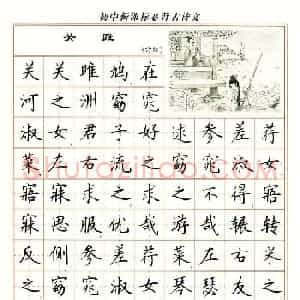 初中新课标必背古诗文
关雎
《诗经》
关关雎鸠在
河之洲窈窕
淑女君子好逑参差荇
菜左右流之窈窕淑女
寤寐求之求之不得寤
寐思服优哉游哉辗转
反侧参差荇菜左右采
之窈窕淑女琴瑟友之
Shufaziliao.com